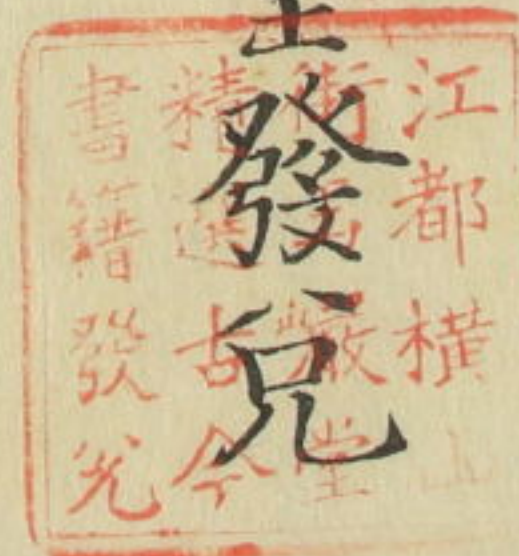 發兌
江都橫山
街玉巖堂
精選古今
書籍發兌